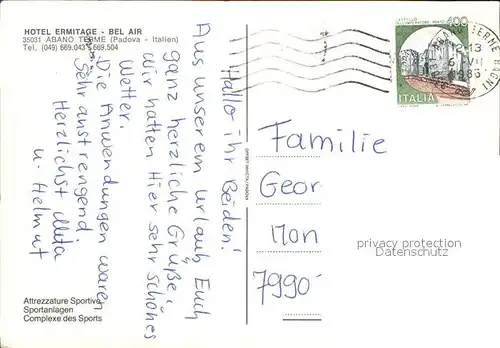 HOTEL ERMITAGE - BEL AIR
35031 ABANO TERME (Padova - Italien)
Tel. (049) 669.043 - 669.504
Hallo ihr Beiden!
Aus unserem Urlaub Euch
ganz herzliche Grüße,
wir hatten hier sehr schönes
Wetter.
Die Anwendungen waren
Sehr anstrengend.
Herzlichst Meta
u. Helmut
Attrezzature Sportive
Sportanlagen
Complexe des Sports
400
ITALIA
Familie
Geor
Mon
7990
privacy protection
Datenschutz